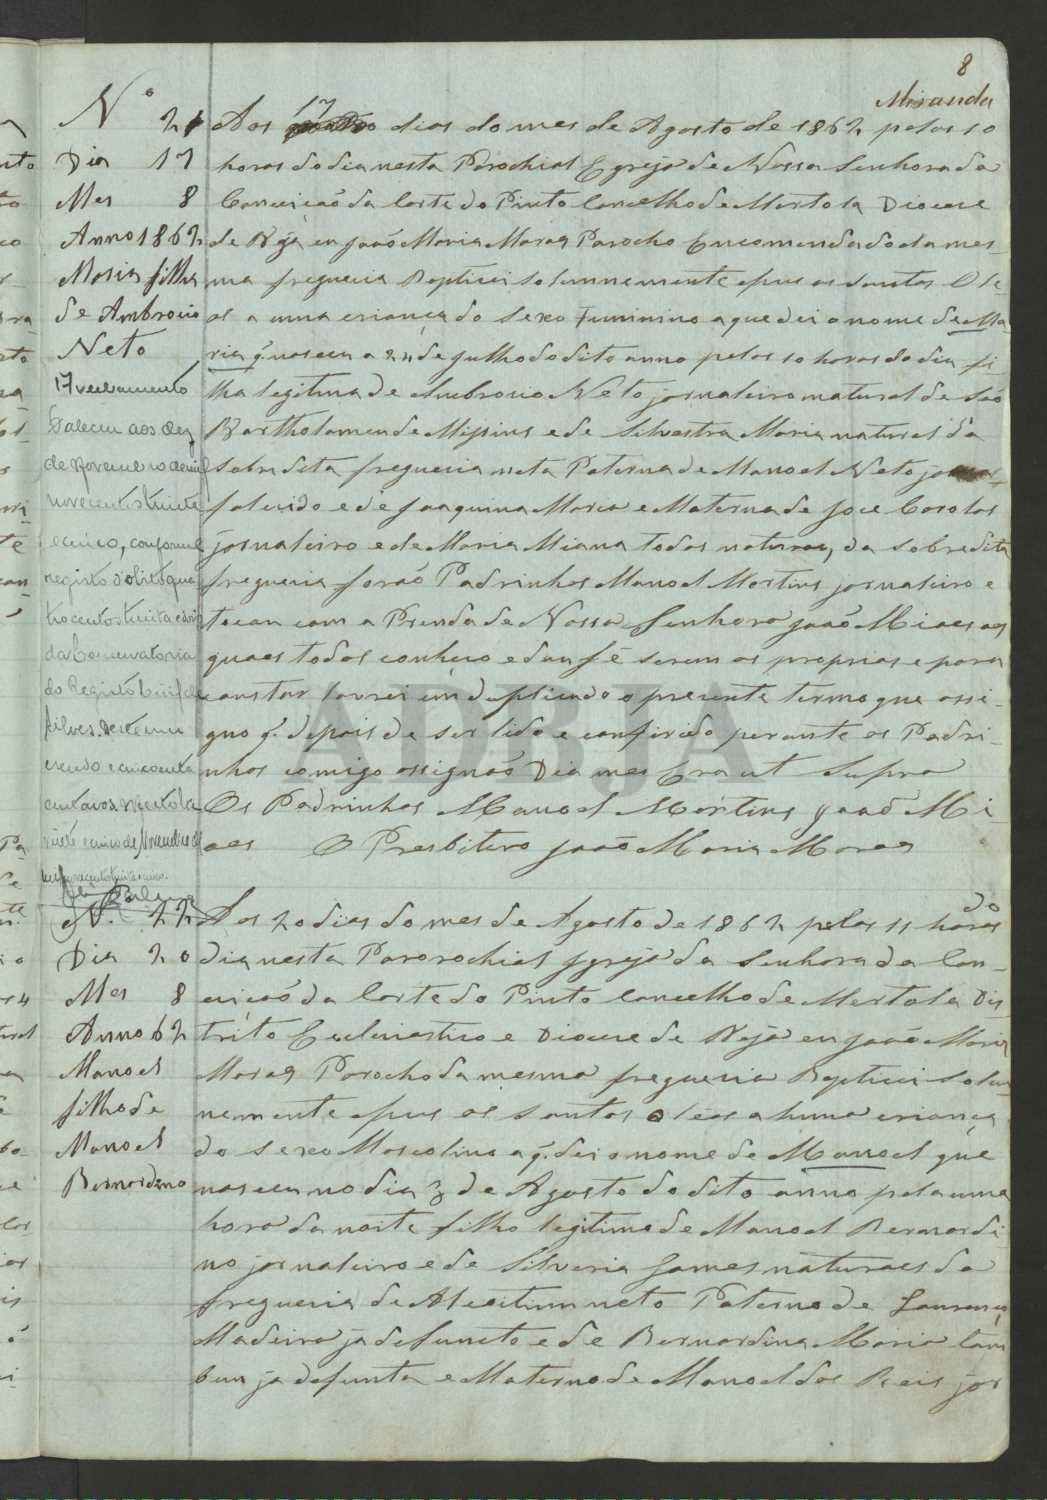 8
Miranda
Nº 21
Dia 17
Mes 8
Anno 1862
Maria filha
de Ambrosio
Neto
Faleceu aos dez
de Novembro de mil
novecentos trinta
e cinco, conforme
registo d'obito
trocentos trinta e
da Conservatoria
do Registo Civil de
Silves.
Aos 17 dias do mes de Agosto de 1862 pelas 10
horas do dia nesta Parochial Egreja de Nossa Senhora da
Conceicão da Corte do Pinto Concelho de Mertola Diocese
de Beja eu João Maria Moras Parocho Encomendado da mes-
ma freguecia Baptizei solemnemente e pus os santos Ole-
os a uma criança do sexo Feminino a que dei o nome de Ma-
ria q̃ nasceu a 24 de Julho do dito anno pelas 10 horas do dia fi-
lha legitima de Ambrosio Neto jornaleiro natural de São
Bartholameu de Messines e de Silvestra Maria natural da
sobredita freguecia neta Paterna de Manoel Neto
falecido e de Joaquina Maria e Materna de Jose Carolas
jornaleiro e de Maria Miana todos naturaes da sobredita
freguecia forão Padrinhos Manoel Martins jornaleiro e
tocou com a Prenda de Nossa Senhora João Miaes os
quaes todos conheco e dou fé serem os proprios e para
constar lavrei em duplicado o presente termo que assi-
gno q̃ depois de ser lido e conferido perante os Padri-
nhos comigo assignão Dia mes Era ut Supra
Os Padrinhos Manoel Martins João Mi-
aes O Presbitero João Maria Moras
Nº 22
Dia 20
Mes 8
Anno 62
Manoel
filho de
Manoel
Bernardino
Aos 20 dias do mes de Agosto de 1862 pelas 11 horas do
dia nesta Pororochial Igreja da Senhora da Con-
ceicão da Corte do Pinto Concelho de Mertola Dis-
trito Eccleciastico e Diocese de Beja eu João Maria
Moras Parocho da mesma freguecia Baptizei solem-
nemente e pus os santos oleos a huma criança
do sexo Mascolino a q̃ dei o nome de Manoel que
nasceu no dia 3 de Agosto do dito anno pela uma
hora da noite filho legitimo de Manoel Bernardi-
no jornaleiro e de Silveria Gomes naturaes da
freguecia de Alcoitim neto Paterno de Lourenço
Madeira ja defuncto e de Bernardina Maria tam
bem ja defunta e Materno de Manoel dos Reis jor
ADBJA